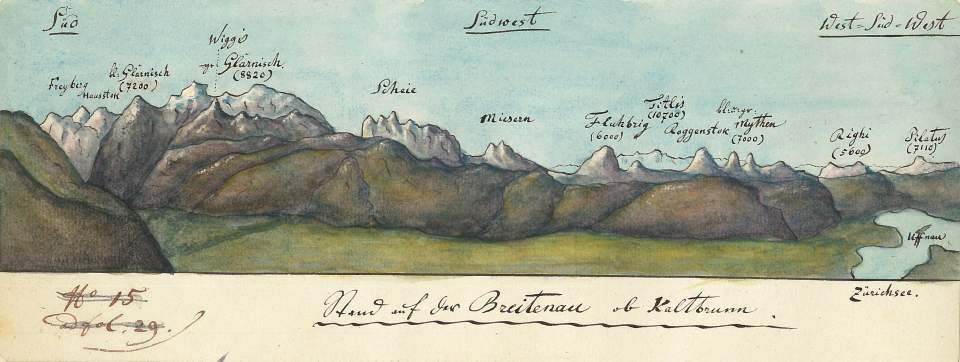 Süd
Südwest
West-Süd-West
Wiggis
Freyberg
Hausstok
kl. Glärnisch
(7200)
gr. Glärnisch.
(8820)
Scheie
Miesern
Fluhbrig
(6000)
Titlis
(10700)
Roggenstok
kl. u. gr.
Mythen
(7000)
Righi
(5600)
Pilatus
(7110)
Uffnau
Zürichsee.
No 15
ad fol. 29.)
Stand auf der Breitenau ob Kaltbrunn.